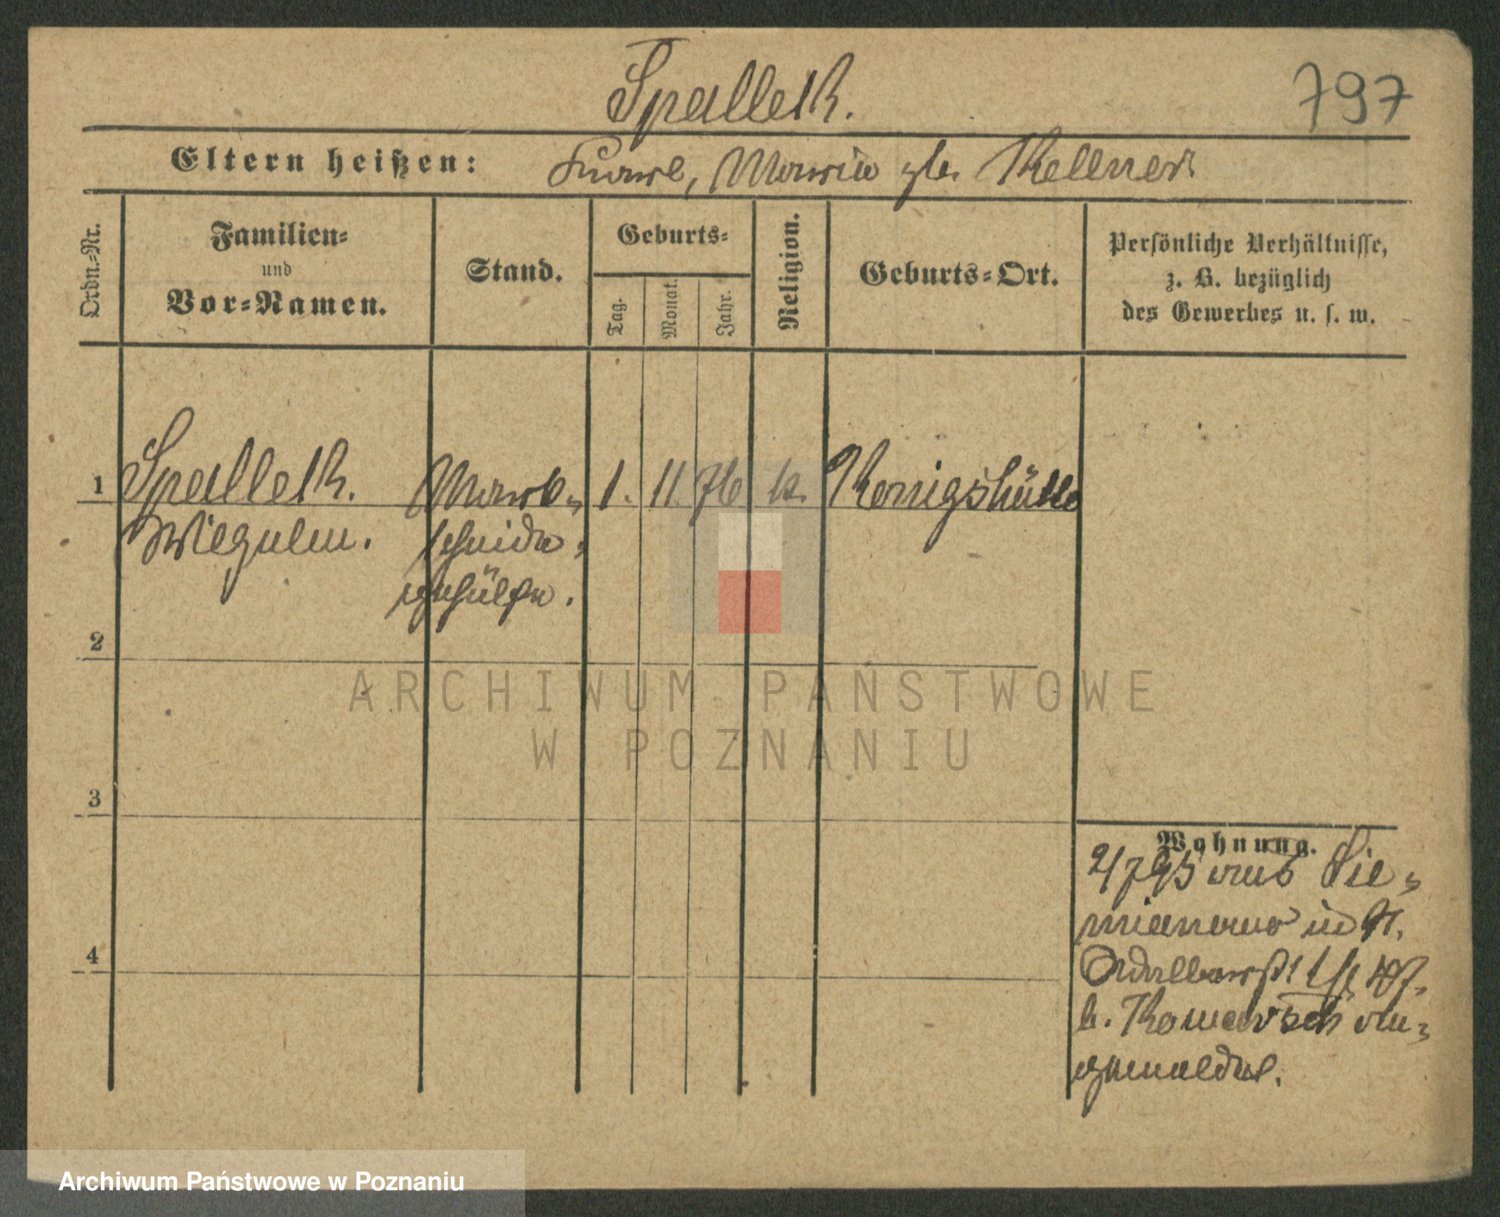 Spallek.
797
Eltern heißen: Karl, Maria geb. Kellner
Ordn.-Nr.
Familien-
und
Vor-Namen.
Stand.
Geburts-
Tag.
Monat.
Jahr.
Religion.
Geburts-Ort.
Persönliche Verhältnisse,
z. B. bezüglich
des Gewerbes u. s. w.
1 Spallek. Mark- 1. 11. 76 k. Königshütte
Wilhelm. scheider-
gehülfe.
2
3
4
Wohnung.
2/7 95 aus Sie-
mianowo in
Adalbertst 1
b. an-
gemeldet.
ARCHIWUM PAŃSTWOWE
W POZNANIU
Archiwum Państwowe w Poznaniu